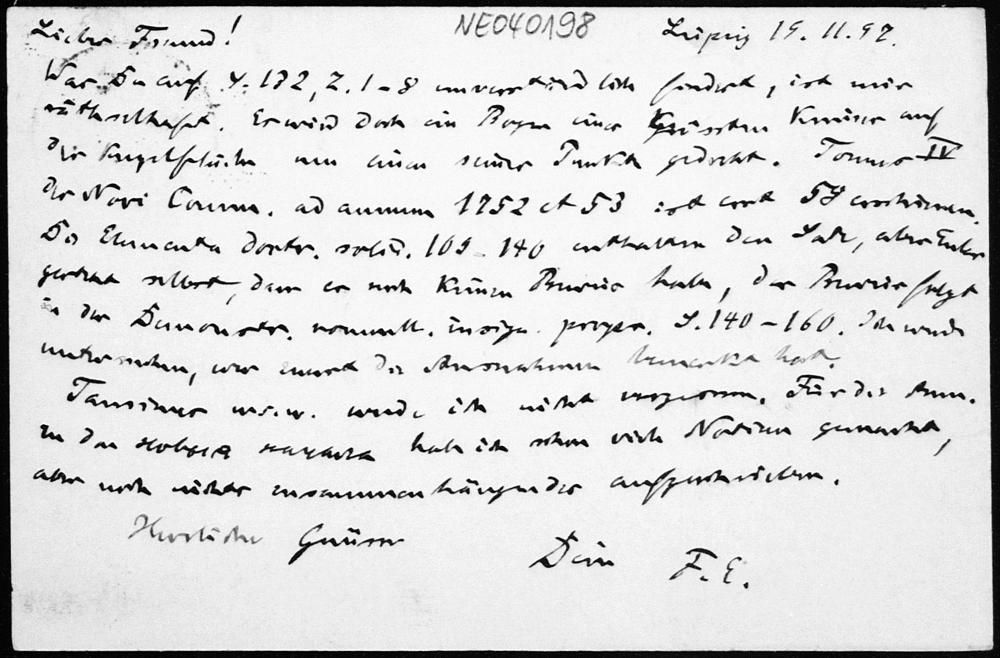 NE040198
Lieber Freund! Leipzig 19.11.97.
Was Du auf S. 182, Z. 1–8 unverständlich findest, ist mir
räthselhaft. Es wird doch ein Bogen eines grössten Kreises auf
der Kugelfläche um einen seiner Punkte gedreht. Tomus IV
der Novi Comm. ad annum 1752 et 53 ist erst 58 erschienen.
Die Elementa doctr. solid. 109–140 enthalten den Satz, aber Euler
gesteht selbst, dass er noch keinen Beweis habe, der Beweis folgt
in der Demonstr. nonnull. insign. propr. S. 140–160. Ich werde
untersuchen, wer zuerst die Ausnahmen bemerkt hat.
Taurinus u.s.w. werde ich nicht vergessen. Für die Anm.
zu den hab ich schon viele Notizen gemacht,
aber noch nichts zusammenhängendes aufgeschrieben.
Herzliche Grüsse
Dein F. E.